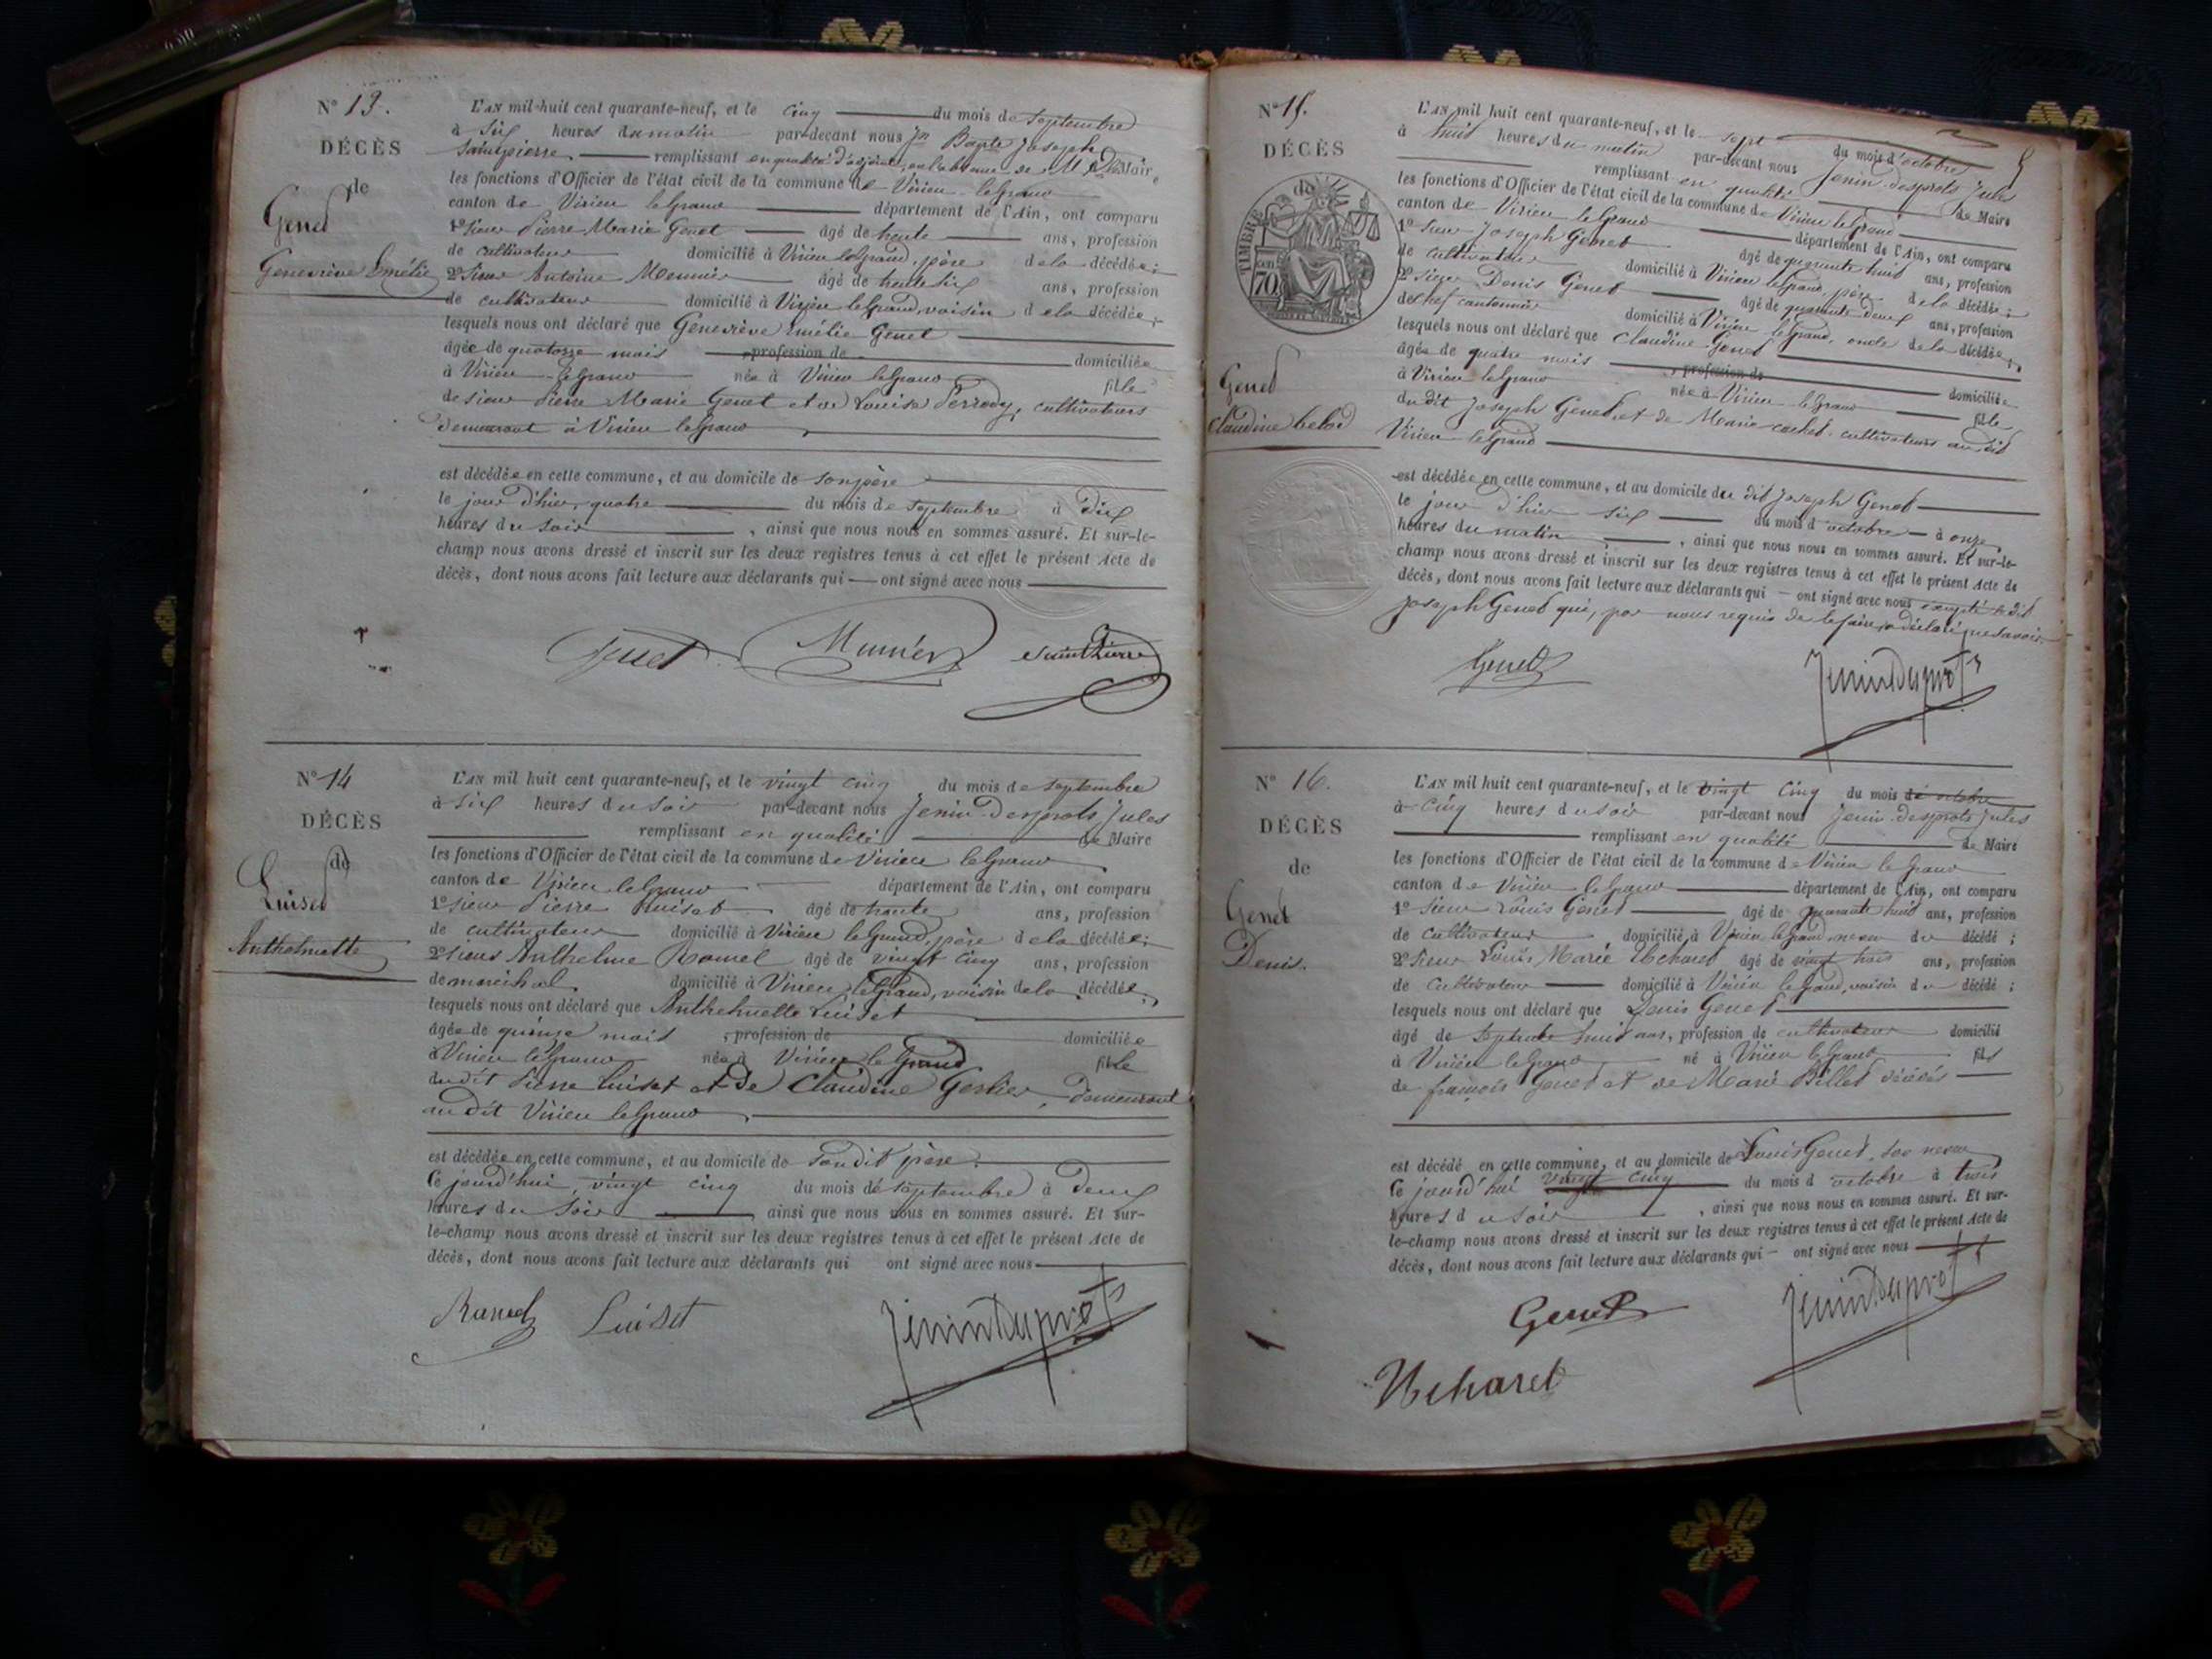 N° 13.
DÉCÈS
de
Genet
Geneviève Emélie
L'AN mil-huit cent quarante-neuf, et le cinq du mois de septembre
à six heures du matin par-devant nous Jn Bapte Joseph
Saintpierre remplissant en qualité d'adjoint, en l'absence de M. le Maire
les fonctions d'Officier de l'état civil de la commune de Virieu legrand
canton de Virieu legrand département de l'Ain, ont comparu
1° sieur Pierre Marie Genet âgé de trente ans, profession
de cultivateur domicilié à Virieu legrand, père de la décédée;
2° sieur Antoine Meunier âgé de trente six ans, profession
de cultivateur domicilié à Virieu legrand, voisin de la décédée;
lesquels nous ont déclaré que Geneviève Emélie Genet
âgée de quatorze mois profession de domiciliée
à Virieu legrand née à Virieu legrand fille
de sieur Pierre Marie Genet et de Louise Perrody, cultivateurs
demeurant à Virieu legrand
est décédée en cette commune, et au domicile de son père
le jour d'hier, quatre du mois de septembre à dix
heures du soir, ainsi que nous nous en sommes assuré. Et sur-le-
champ nous avons dressé et inscrit sur les deux registres tenus à cet effet le présent Acte de
décès, dont nous avons fait lecture aux déclarants qui ont signé avec nous
Genet Munier Saintpierre
N° 14
DÉCÈS
de
Luiset
Anthelmette
L'AN mil huit cent quarante-neuf, et le vingt cinq du mois de septembre
à six heures du soir par-devant nous Jenin-Desprots Jules
remplissant en qualité de Maire
les fonctions d'Officier de l'état civil de la commune de Virieu legrand
canton de Virieu legrand département de l'Ain, ont comparu
1° sieur Pierre Luiset âgé de trente ans, profession
de cultivateur domicilié à Virieu legrand, père de la décédée;
2° sieur Anthelme Ramel âgé de vingt cinq ans, profession
de maréchal domicilié à Virieu legrand, voisin de la décédée,
lesquels nous ont déclaré que Anthelmette Luiset
âgée de quinze mois, profession de domiciliée
à Virieu legrand née à Virieu le Grand fille
du dit Pierre Luiset et de Claudine Gerlier, demeurant
au dit Virieu legrand
est décédée en cette commune, et au domicile de son dit père
Ce jourd'hui, vingt cinq du mois de septembre à deux
heures du soir ainsi que nous nous en sommes assuré. Et sur-
le-champ nous avons dressé et inscrit sur les deux registres tenus à cet effet le présent Acte de
décès, dont nous avons fait lecture aux déclarants qui ont signé avec nous
Ramel Luiset JeninDesprots
N° 15.
DÉCÈS
de
TIMBRE
70
Genet
Claudine
L'AN mil huit cent quarante-neuf, et le sept du mois d'octobre
à huit heures du matin par-devant nous Jenin-Desprots Jules
remplissant en qualité de Maire
les fonctions d'Officier de l'état civil de la commune de Virieu legrand
canton de Virieu legrand département de l'Ain, ont comparu
1° sieur Joseph Genet âgé de quarante huit ans, profession
de cultivateur domicilié à Virieu legrand, père de la décédée;
2° sieur Denis Genet âgé de quarante deux ans, profession
de chef cantonnier domicilié à Virieu legrand, oncle de la décédée;
lesquels nous ont déclaré que Claudine Genet
âgée de quatre mois, profession de domiciliée
à Virieu legrand née à Virieu legrand fille
du dit Joseph Genet et de Marie Cochet, cultivateurs au dit
Virieu legrand
est décédée en cette commune, et au domicile du dit Joseph Genet
le jour d'hier six du mois d'octobre à onze
heures du matin, ainsi que nous nous en sommes assuré. Et sur-le-
champ nous avons dressé et inscrit sur les deux registres tenus à cet effet le présent Acte de
décès, dont nous avons fait lecture aux déclarants qui ont signé avec nous excepté le dit
Joseph Genet qui, par nous requis de le faire, a déclaré ne savoir.
Genet JeninDesprots
N° 16.
DÉCÈS
de
Genet
Denis.
L'AN mil huit cent quarante-neuf, et le vingt cinq du mois de octobre
à cinq heures du soir par-devant nous Jenin-Desprots Jules
remplissant en qualité de Maire
les fonctions d'Officier de l'état civil de la commune de Virieu le grand
canton de Virieu legrand département de l'Ain, ont comparu
1° sieur Louis Genet âgé de quarante huit ans, profession
de cultivateur domicilié à Virieu legrand, neveu du décédé;
2° sieur Louis Marie âgé de vingt trois ans, profession
de cultivateur domicilié à Virieu legrand, voisin du décédé;
lesquels nous ont déclaré que Denis Genet
âgé de septante huit ans, profession de cultivateur domicilié
à Virieu legrand né à Virieu legrand fils
de françois Genet et de Marie Billet décédés
est décédé en cette commune, et au domicile de Louis Genet, son neveu
Ce jourd'hui vingt cinq du mois d'octobre à trois
heures du soir, ainsi que nous nous en sommes assuré. Et sur-
le-champ nous avons dressé et inscrit sur les deux registres tenus à cet effet le présent Acte de
décès, dont nous avons fait lecture aux déclarants qui ont signé avec nous
Genet JeninDesprots